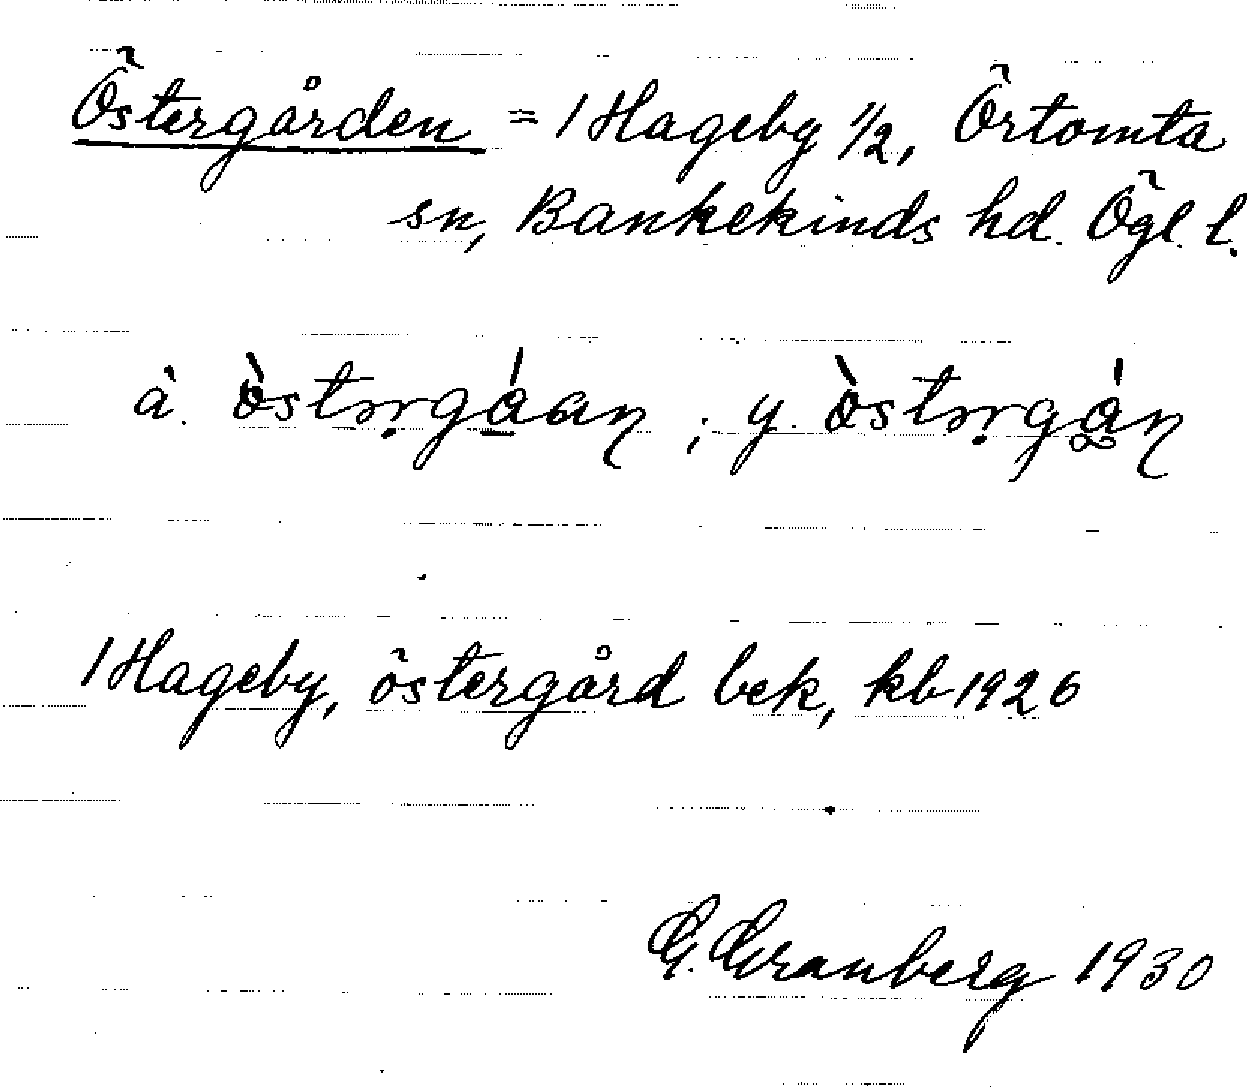 Östergården = 1 Hageby 1/2, Örtomta
sn, Bankekinds hd. Ögl. l.
ä. ; y.
1 Hageby, östergård bek, kb 1926
G. Granberg 1930